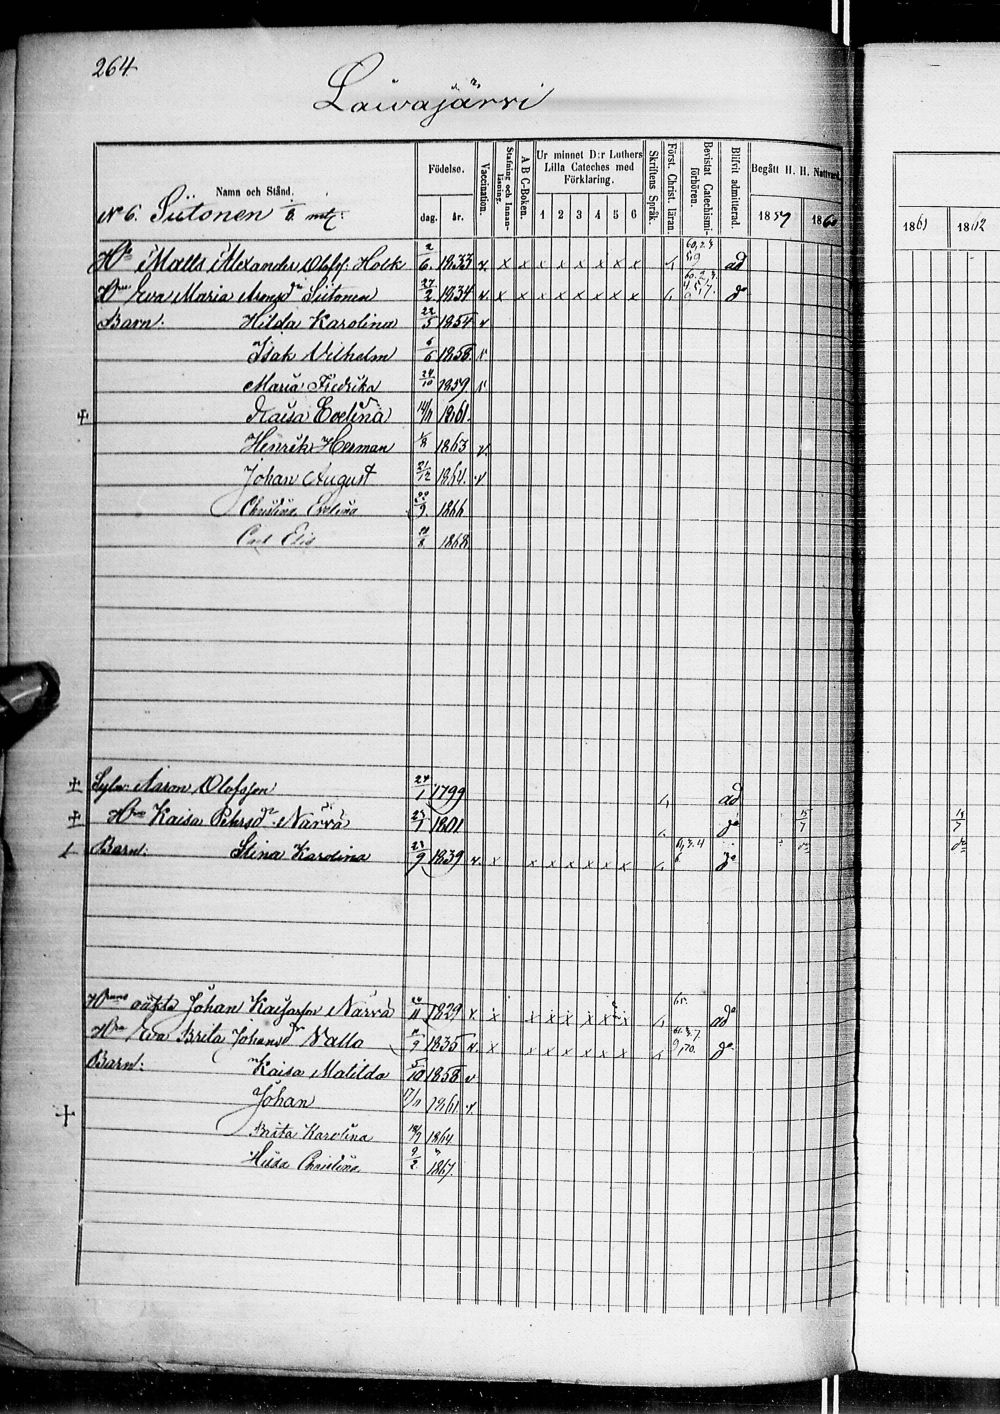 264
Laivajärvi
Namn och Stånd.
Födelse.
dag.
år.
Vaccination.
Stafning och Innanläsning.
A B C-Boken.
Ur minnet D:r Luthers Lilla Cateches med Förklaring.
1 2 3 4 5 6
Skriftens Språk.
Först. Christ. läran.
Bevistat Catechismiförhören.
Blifvit admitterad.
Begått H. H. Nattvard.
1859 1860 1861 1862
N 6. Siitonen 1/6 mtl:
Matts Alexander Olofss. Holk 2/6 1833 v. x x x x x x x x ad
Hu Eva Maria Aronsdr Siitonen 27/2 1834 v. x x x x x x x x do
Barn: Hilda Karolina 22/5 1854 v
Isak Vilhelm 6/6 1858 v
Maria Fredrika 24/10 1859 v
+ Kaisa Evelina 14/11 1861.
Henrik Herman 1863 v
Johan August 21/12 1864. v
Christina Evelina 22/9 1866
Carl Elis 1868
+ Aaron Olofsson 24/1 1799 ad
+ Hu Kaisa Petersdr Närvä 1801 do 15/7
Barn: Stina Karolina 23/9 1839 v. x x x x x x x do
Johan Kaisasson Närvä 1829 v. x x x x x x x ad
Hu Eva Brita Johansdr Vallo 1835 v. x x x x x x x do
Barn: Kaisa Matilda 5/10 1858 v
+ Johan 17/11 1861 v.
Brita Karolina 1864
Hilda Christina 9/2 1867.